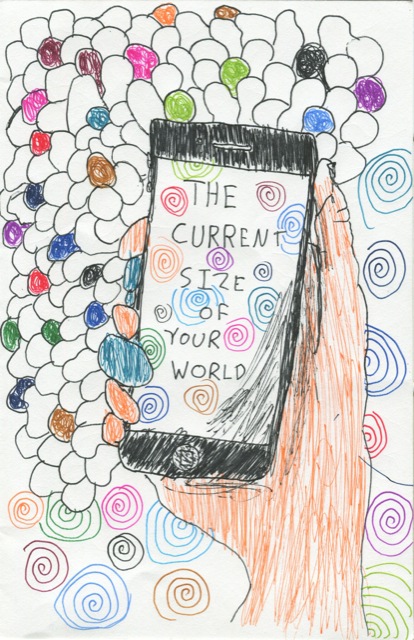 THE
CURRENT
SIZE
OF
YOUR
WORLD